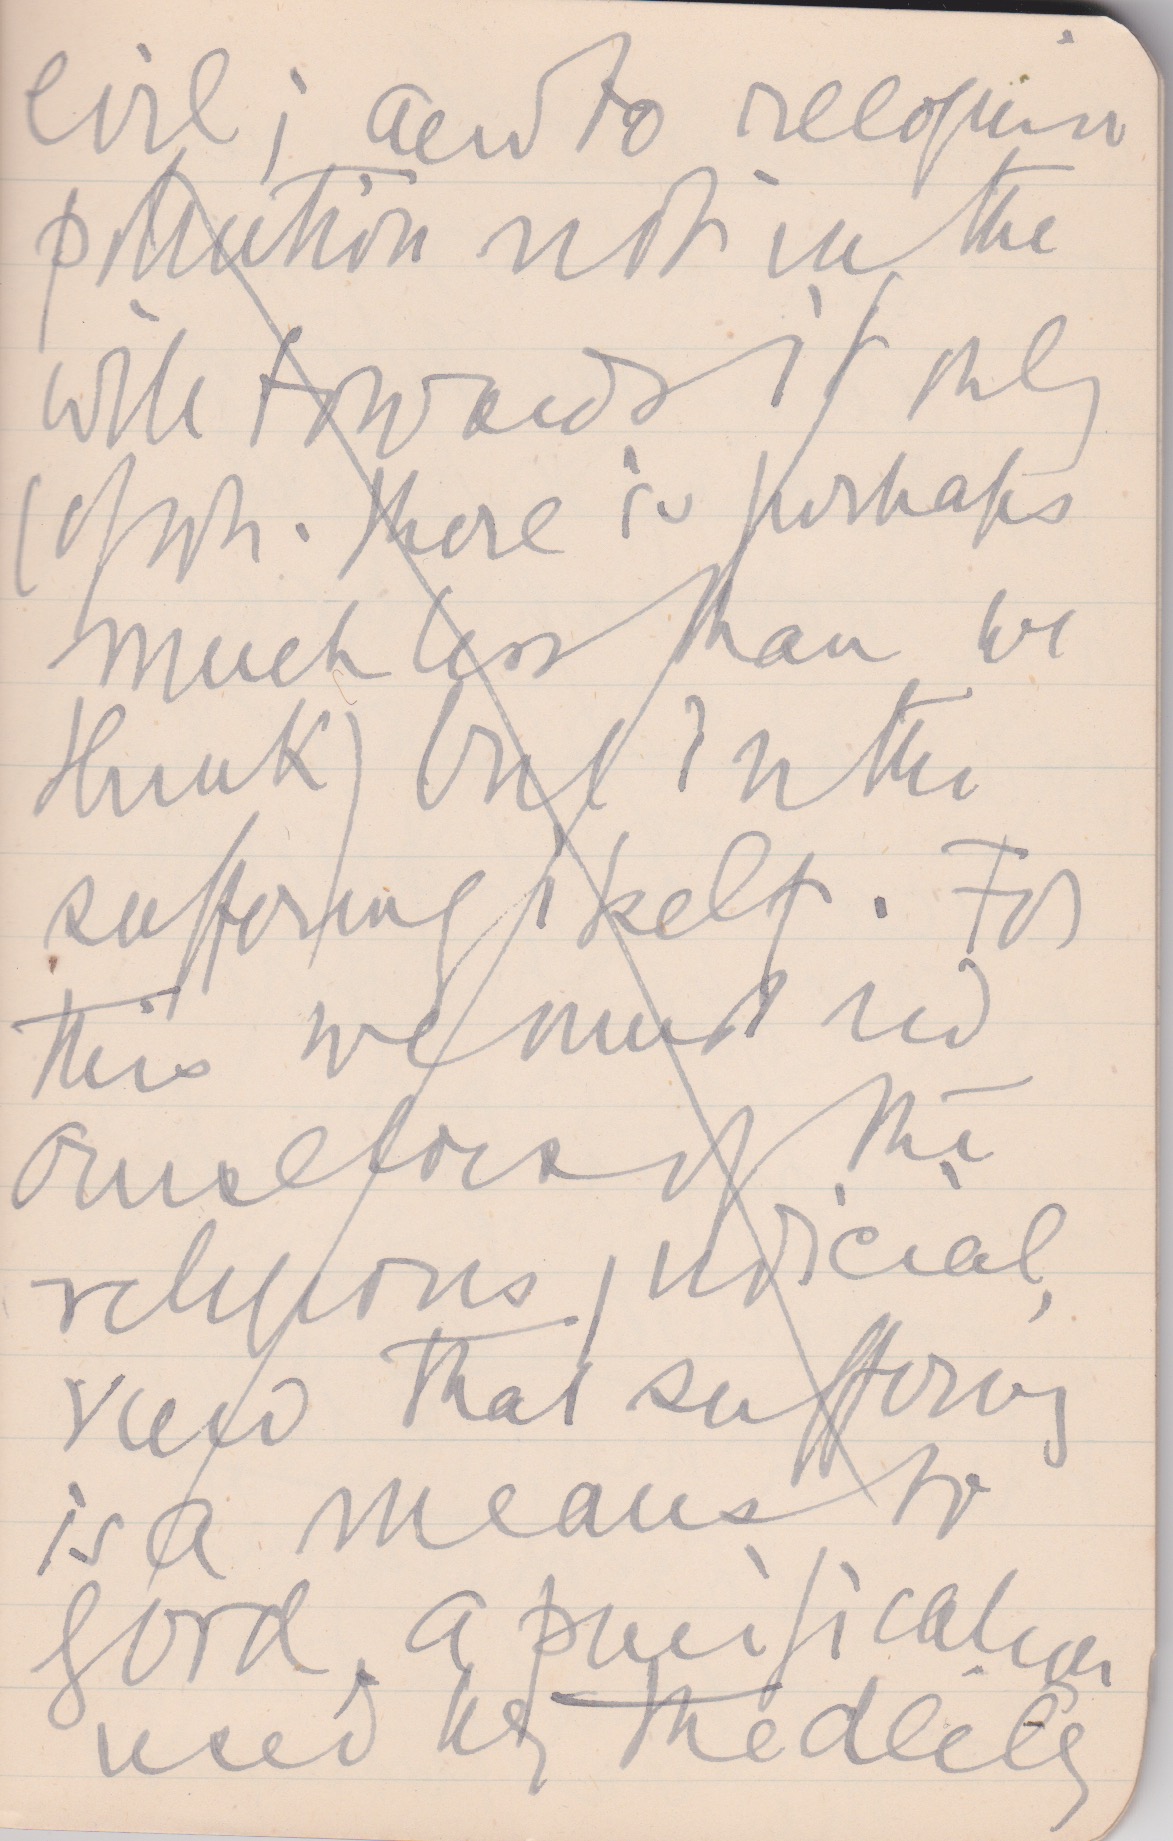 evil; and to recognise
pollution not in the
will towards it only
(of wh. there is perhaps
much less than we
think) but in the
suffering itself. For
this we must rid
ourselves of the
religious, judicial,
view that suffering
is a means to
good, a purification
used by the deity